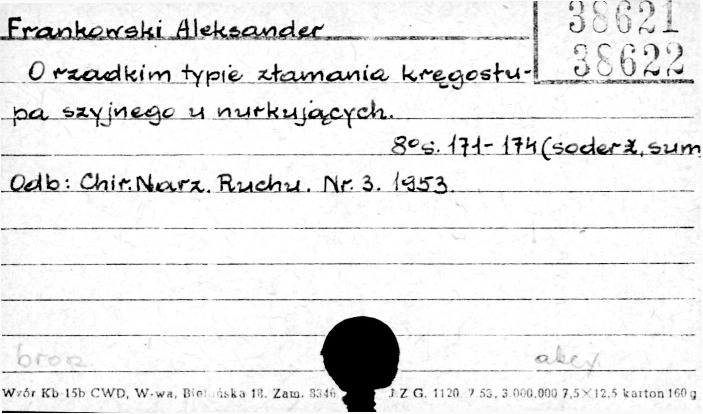 Frankowski Aleksander
38621
38622
O rzadkim typie złamania kręgosłu-
pa szyjnego u nurkujących.
8° s. 171-174 (soderż, sum
Odb: Chir. Narz. Ruchu. Nr. 3. 1953.
brosz
akcy
Wzór Kb 15b CWD, W-wa, Bielańska 18. Zam. 8346
J.Z G. 1120. 7.53. 3.000.000 7,5×12,5 karton 160 g